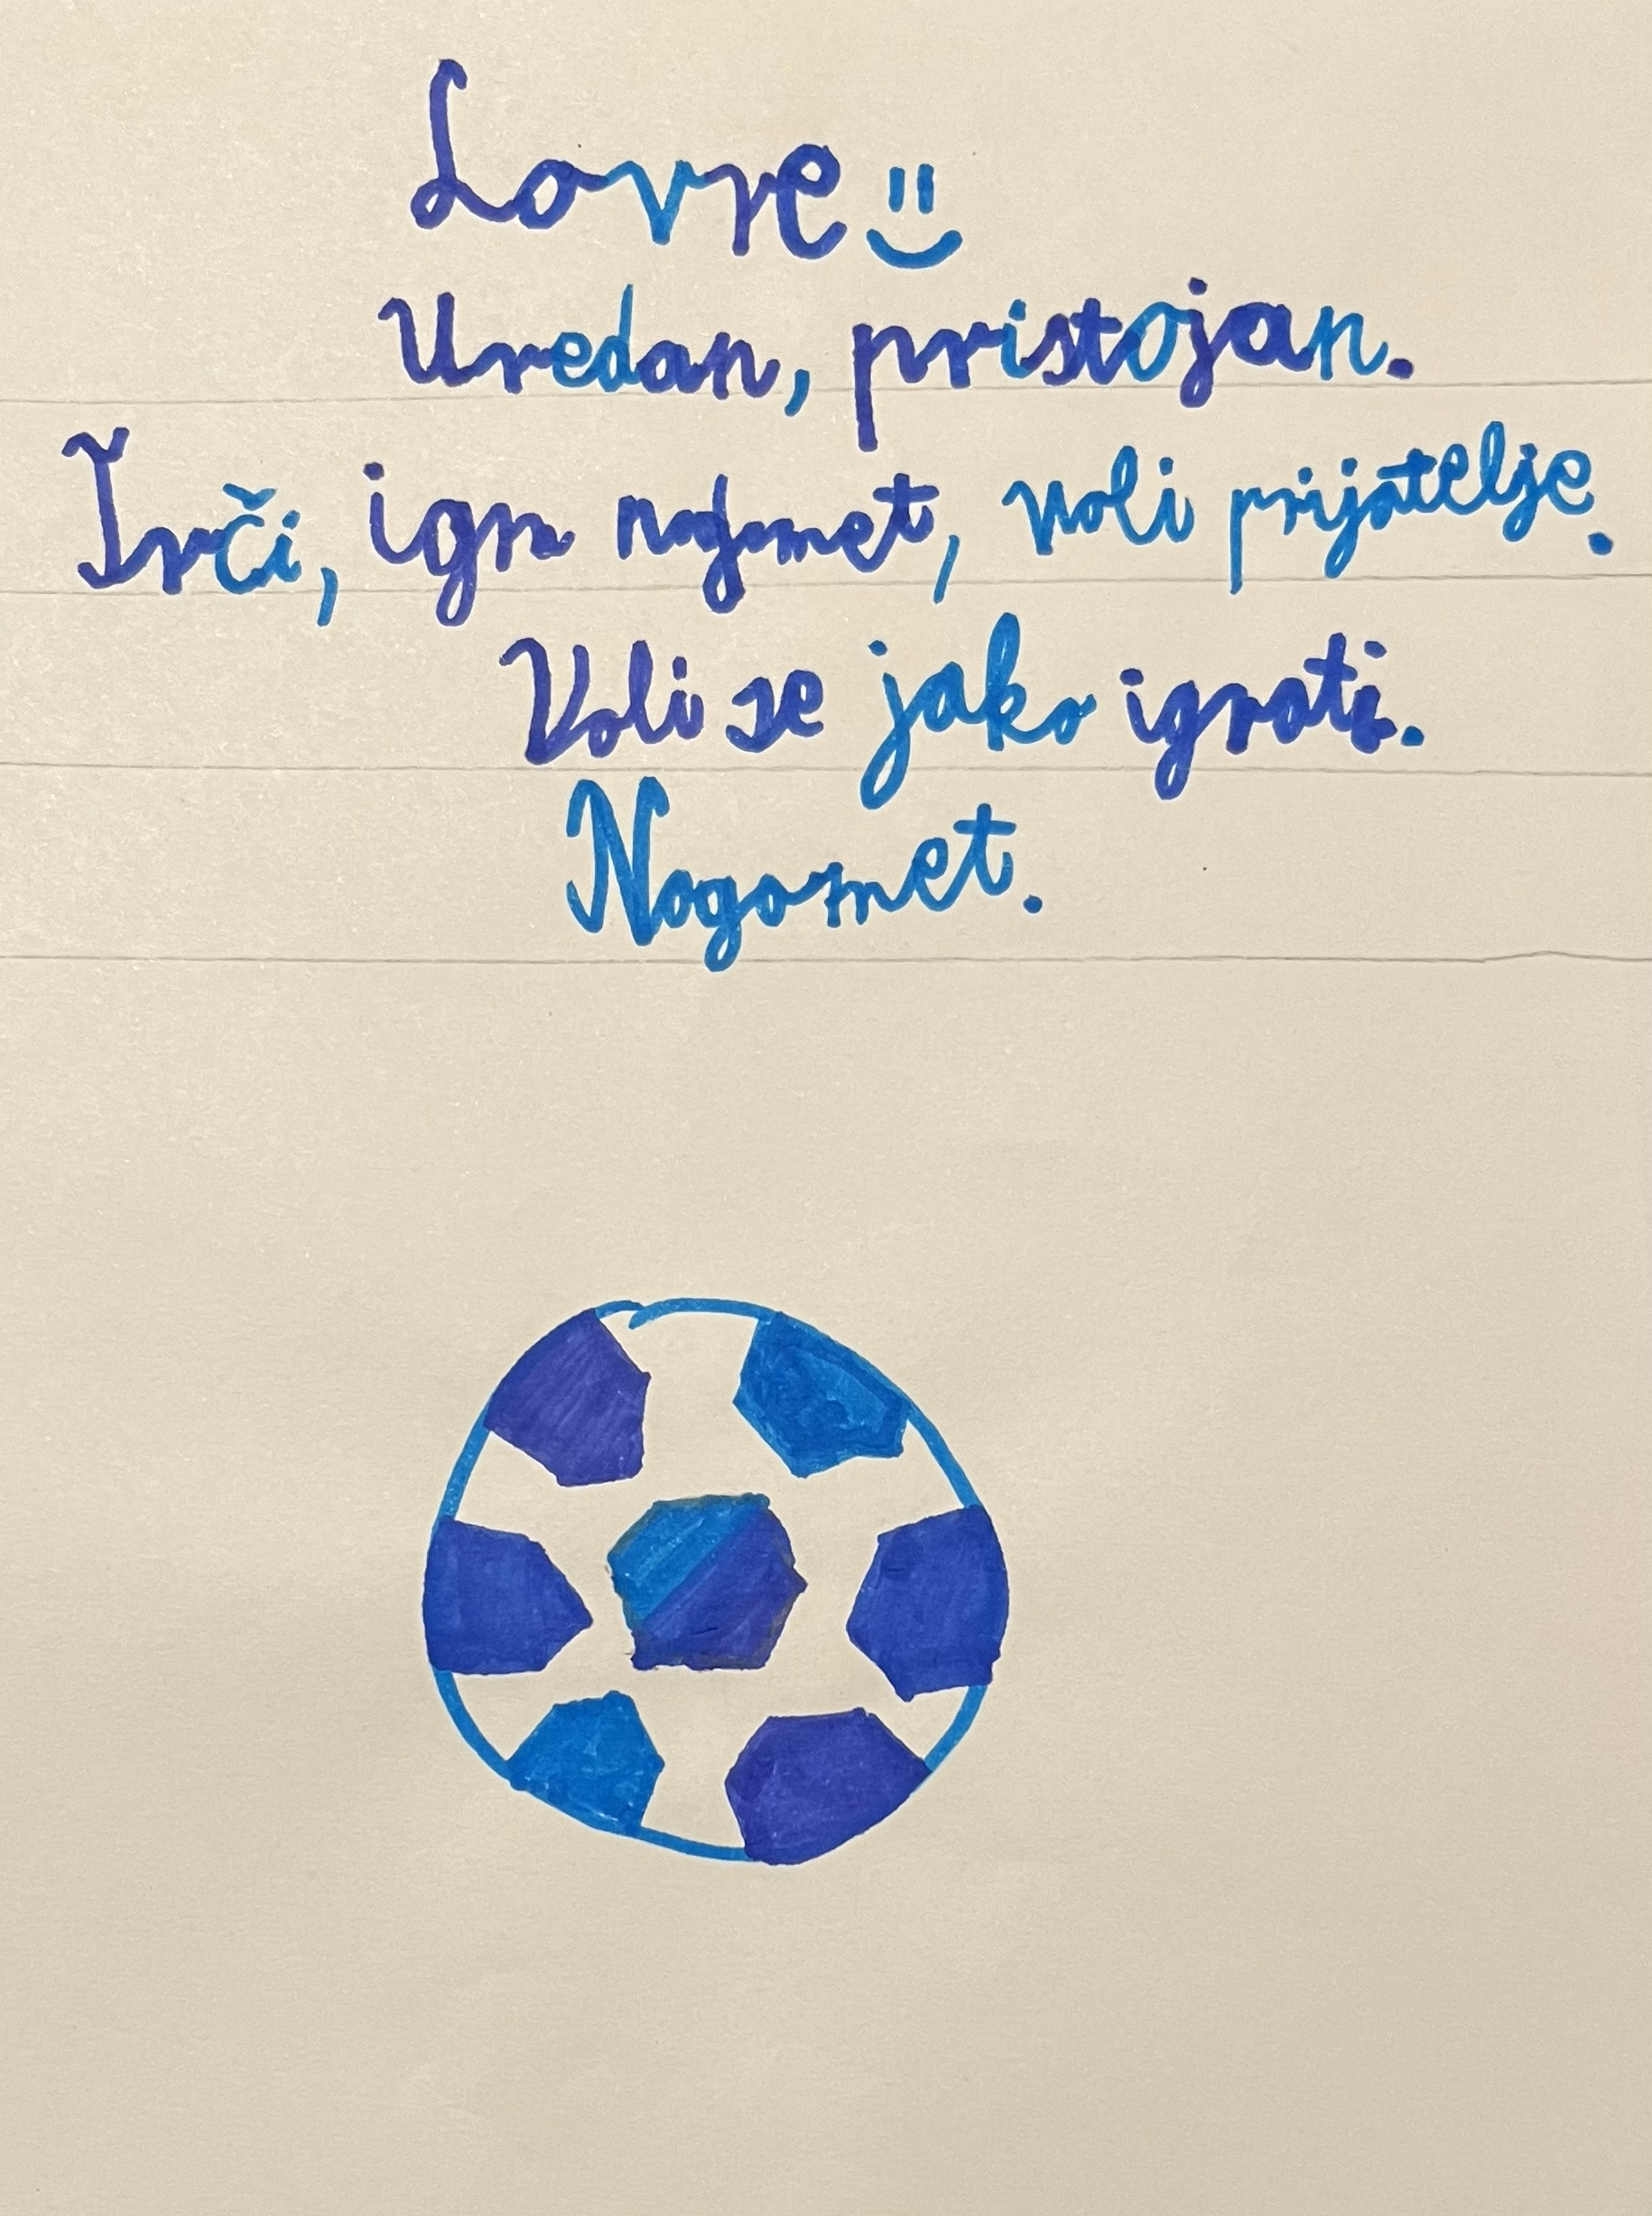 Lovre
Uredan, pristojan.
Trči, igra nogomet, voli prijatelje.
Voli se jako igrati.
Nogomet.